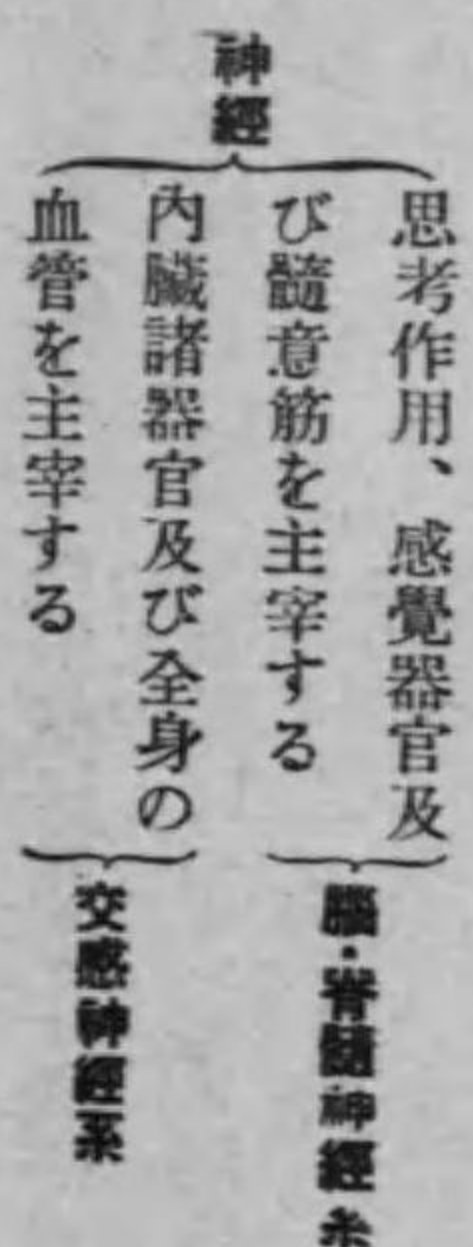 神經
思考作用、感覺器官及
び髓意筋を主宰する
腦・脊髓神經系
內臟諸器官及び全身の
血管を主宰する
交感神經系